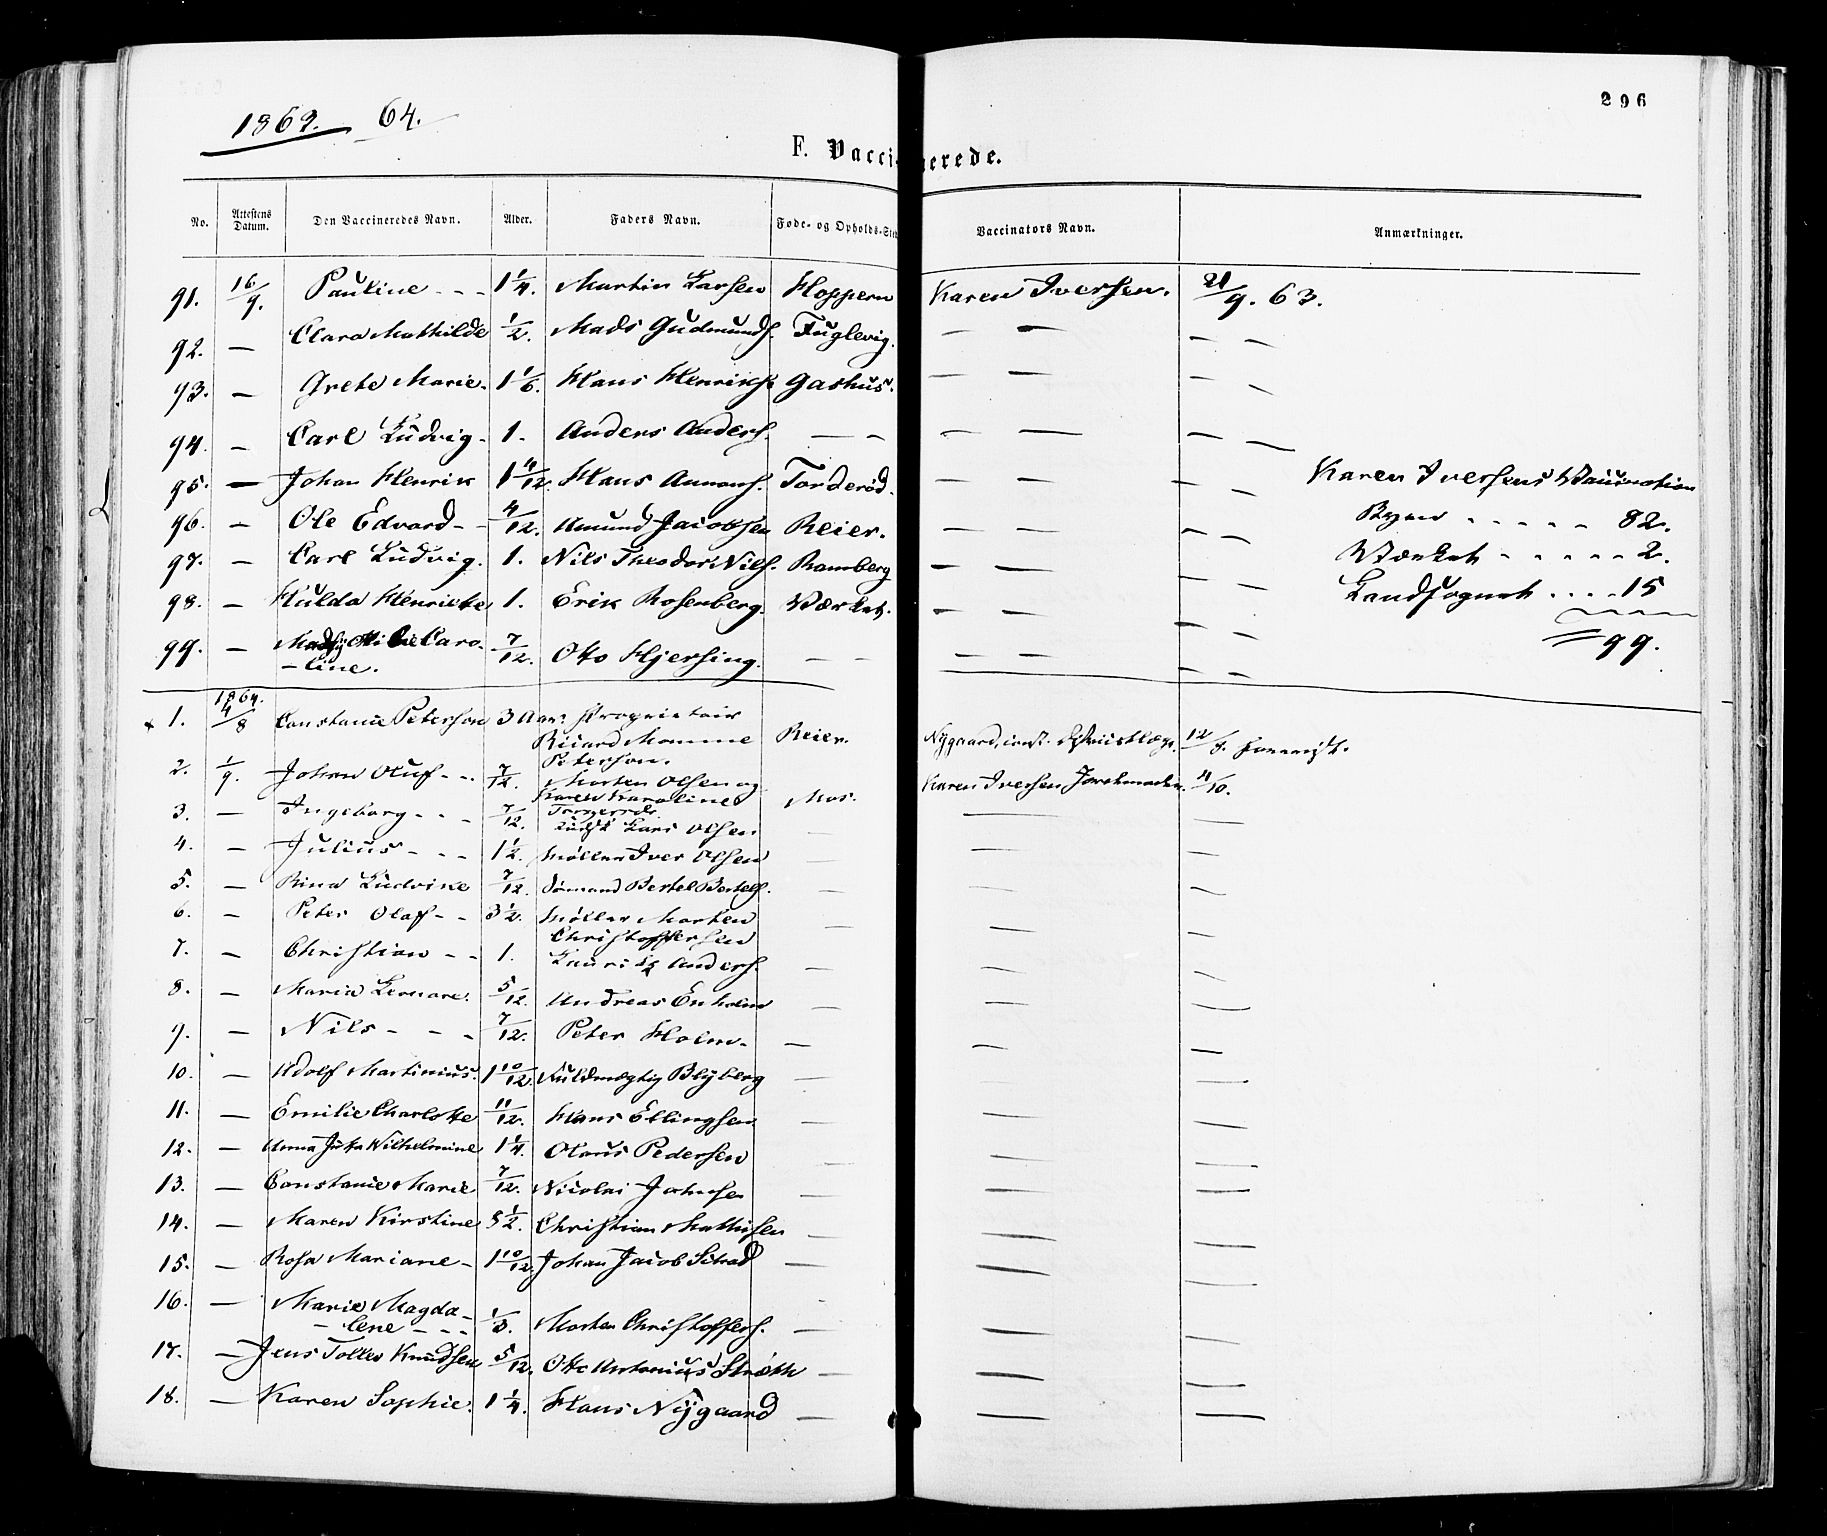 1863. 64.
296
F. Vaccinerede.
No. Attestens Datum. Den Vaccineredes Navn. Alder. Faders Navn. Føde- og Opholds-Sted Vaccinators Navn. Anmærkninger.
91. 16/9. Pauline - - - 1 1/4. Martin Larsen Hoppern Karen Iversen. 21/9. 63.
92. — Clara Mathilde 1/2. Mads Gudmunds. Fuglevig. — — — —
93. — Grete Marie. 1 1/6. Hans Henriks. Gashus. — — — —
94. — Carl Ludvig - 1. Anders Anders. — — — — — —
95. — Johan Henrik 1 4/12. Hans Amans. Torderød. — — — — Karen Iversens Vaccination
96. — Ole Edvard - - 4/12. Amund Jacobsen Reier. — — — — Byen - - - - - 82.
97. — Carl Ludvig. 1. Nils Theodor Nils. Ramberg — — — — Værket - - - - - 2.
98. — Hulda Henriette 1. Erik Rosenberg. Værket. — — — — Landsognet . . . . 15
99. — Caro- 7/12. Otto Hjersing. — — — — — — 99.
- line.
1864.
1. 4/8 Constance Peterson 3 Aar. Proprietair
Ricard Momme Reier. Nygaard, const. 12/8.
Peterson.
2. 1/9. Johan Oluf - - 7/12. Morten Olsen og Karen Iversen Jordemoder. 11/10.
Karen Karoline Mos.
3. — Ingeborg - - - 7/12. — — —
Lars Olsen
4. — Julius - - - 1 1/2. Møller Iver Olsen — — —
5. — Rina Ludvike 7/12. Sømand Bertel Bertels. — — —
6. — Peter Olaf - - 3 1/2. Møller Morten — — —
Christoffersen
7. — Christian - - 1. Lauritz Anders. — — —
8. — Maria 5/12. Andreas Enholm — — —
9. — Nils - - - 7/12. Peter Holm. — — —
10. — Adolf Martinius. 1 10/12. Fuldmægtig Blyberg — — —
11. — Emilie Charlotte 11/12. Hans Ellingsen — — —
12. — Anna Jutta Wilhelmine 1 1/4. Olaus Pedersen — — —
13. — Constance Marie 7/12. Nicolai Johnsen — — —
14. — Maren Kirstine 5 1/2. Christian Mathisen — — —
15. — Rosa Mariane - 1 10/12. Johan Jacob — — —
16. — Marie Magda-
- lene - - - 1/3. Morten Christoffers. — — —
17. — Jens Tolles Knudsen 5/12. Otto Antonius — — —
18. — Karen Sophie. 1 1/4. Hans Nygaard — — —